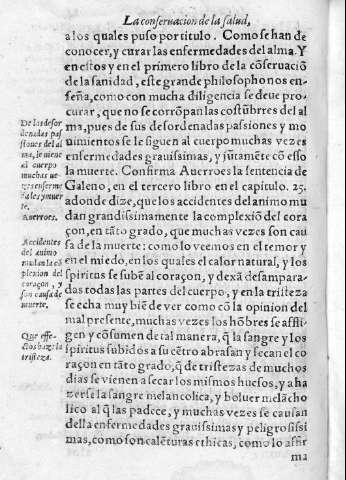 La conseruacion de la salud,
a los quales puso por titulo. Como se han de
conocer, y curar las enfermedades del alma. Y
en estos y en el primero libro de la cõseruaciõ
de la sanidad, este grande philosopho nos en-
seña, como con mucha diligencia se deue pro-
curar, que no se corrõpan las costũbres del al
ma, pues de sus desordenadas passiones y mo
uimientos se le siguen al cuerpo muchas vezes
enfermedades grauissimas, y jũtamẽte cõ esso
la muerte. Confirma Auerroes la sentencia de
Galeno, en el tercero libro en el capitulo. 25.
adonde dize, que los accidentes del animo mu
dan grandissimamente la complexiõ del cora
çon, en tãto grado, que muchas vezes son cau
sa de la muerte: como lo veemos en el temor y
en el miedo, en los quales el calor natural, y los
spiritus se subẽ al coraçon, y dexã desampara-
das todas las partes del cuerpo, y en la tristeza
se echa muy biẽ de ver como cõ la opinion del
mal presente, muchas vezes los hõbres se affli-
gen y cõsumen de tal manera, q̃ la sangre y los
spiritus subidos a su cẽtro abrasan y secan el co
raçon en tãto grado, q̃ de tristezas de muchos
dias se vienen a secar los mismos huesos, y a ha
zerse la sangre melancolica, y boluer melãcho
lico al q̃ las padece, y muchas vezes se causan
della enfermedades grauissimas y peligrosissi
mas, como son calẽturas ethicas, como lo affir
ma
De las desor
denadas pas
siones del al
ma, le viene
al cuerpo
muchas ve
zes enferme
dades y muer
te.
Auerroes.
Accidentes
del animo
mudan la cõ
plexion del
coraçon, y
son causa de
muerte.
Que effe-
ctos haze la
tristeza.